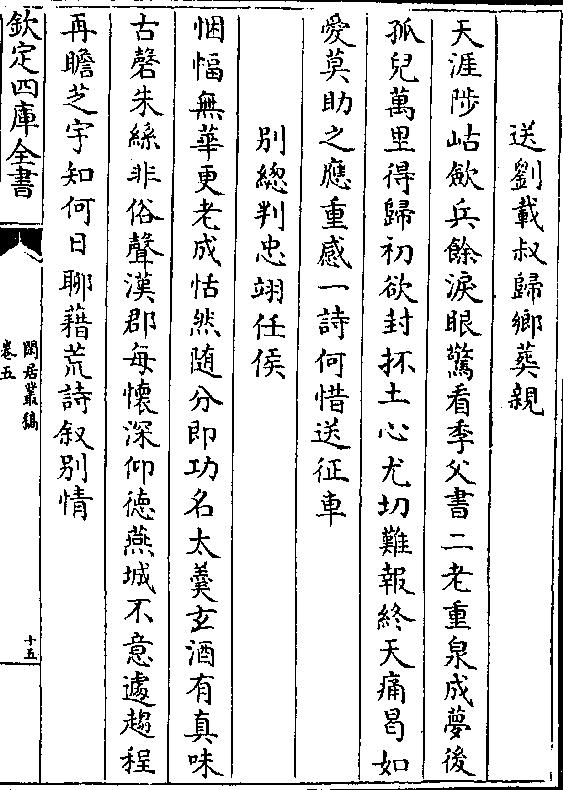 送劉載叔歸鄉葬親
天涯陟岵歛兵餘淚眼驚看季父書二老重泉成夢後
孤兒萬里得歸初欲封抔土心尤切難報終天痛曷如
愛莫助之應重感一詩何惜送征車
別總判忠翊任侯
悃愊無華更老成恬然随分即功名太羮玄酒有真味
古磬朱絲非俗聲漢郡每懷深仰德燕城不意遽趨程
再瞻芝宇知何日聊藉荒詩叙別情
欽定四庫全書
閒居叢稿
卷五
十五